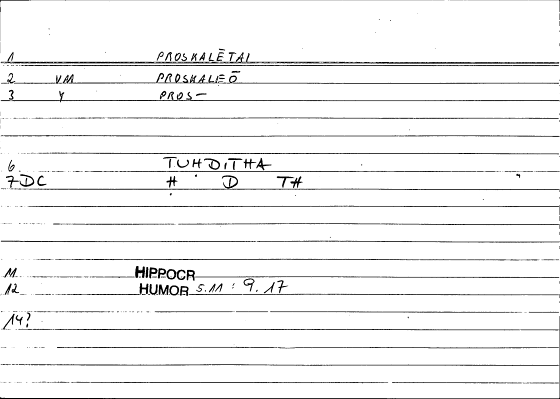 1 PROSKALĒTAI
2 VM PROSKALEŌ
3 Y PROS—
6 TUHDITHA
7 DC Ḥ D TH
11 HIPPOCR
12 HUMOR S.11 : 9.17
14?